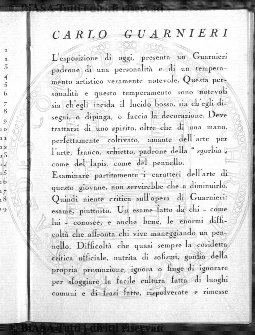 CARLO GUARNIERI
L'esposizione di oggi, presenta un Guarnieri
padrone di una personalità e di un tempera-
mento artistico veramente notevole. Questa per-
sonalità e questo temperamento sono notevoli
sia ch'egli incida il lucido bosso, sia ch'egli di-
segni, o dipinga, o faccia la decorazione. Deve
trattarsi di uno spirito, oltre che di una mano,
perfettamente coltivato, amante dell'arte per
l'arte, franco, schietto, padrone della "sgorbia"
come del lapis, come del pennello.
Esaminare partitamente i caratteri dell'arte di
questo giovane, non servirebbe che a diminuirlo.
Quindi niente critica sull'opera di Guarnieri:
esame, piuttosto. Un esame fatto da chi - come
lui - conosce, e anche bene, le enormi diffi-
coltà che affronta chi vive maneggiando un pen-
nello. Difficoltà che quasi sempre la cosidetta
critica ufficiale, nutrita di sofismi, gonfia della
propria presunzione, ignora o finge di ignorare
per sfoggiare la facile cultura fatta di luoghi
comuni e di frasi fatte, rispolverate e rimesse